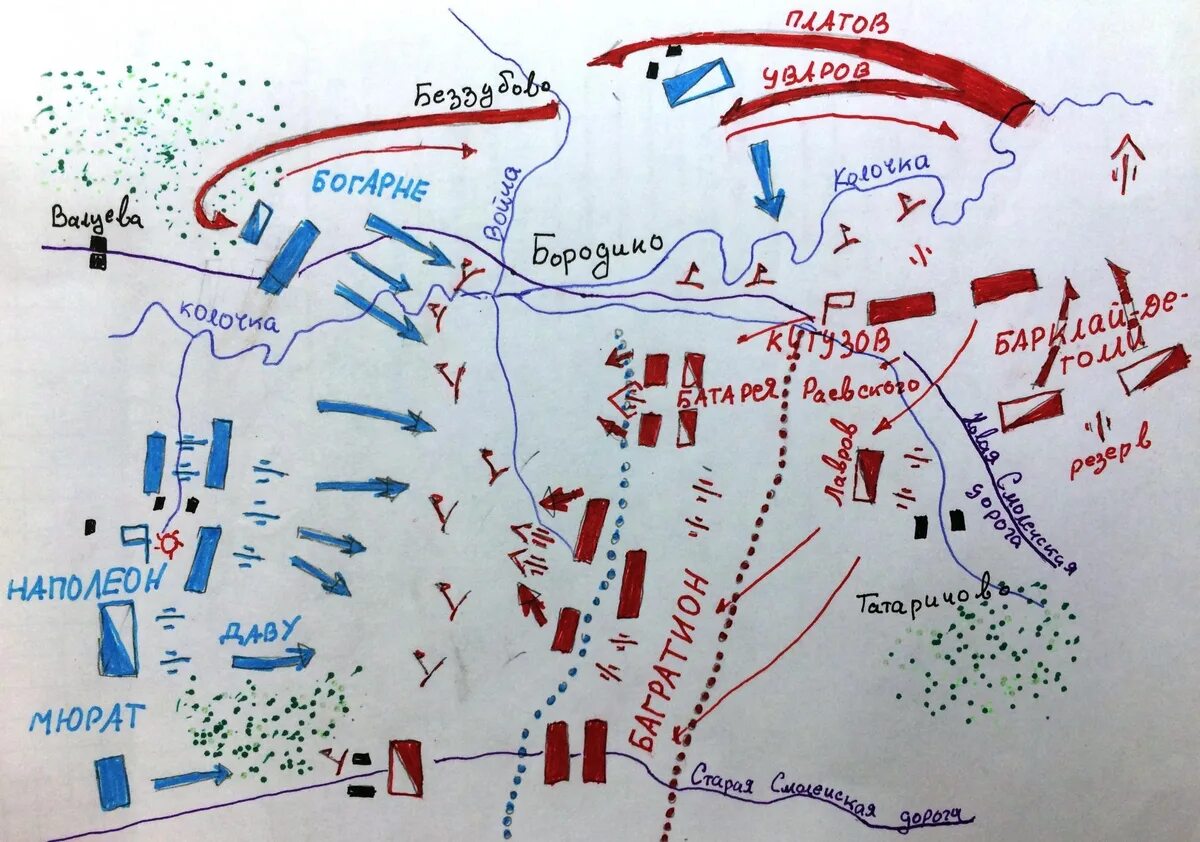 ПЛАТОВ
УВАРОВ
Беззубово
БОГАРНЕ
Война
Колочка
Валуева
Бородино
КОЛОЧКА
КУТУЗОВ
БАРКЛАЙ-ДЕ-
ТОЛЛИ
БАТАРЕЯ Раевского
Лавров
резерв
Новая Смоленская
дорога
НАПОЛЕОН
ДАВУ
БАГРАТИОН
Татариново
МЮРАТ
Старая Смоленская дорога